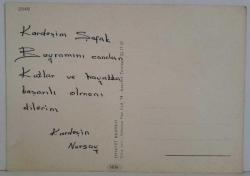 2949
Kardeşim Şafak
Bayramını candan
Kutlar ve hayatta
başarılı olmanı
dilerim
Kardeşin
Nursay